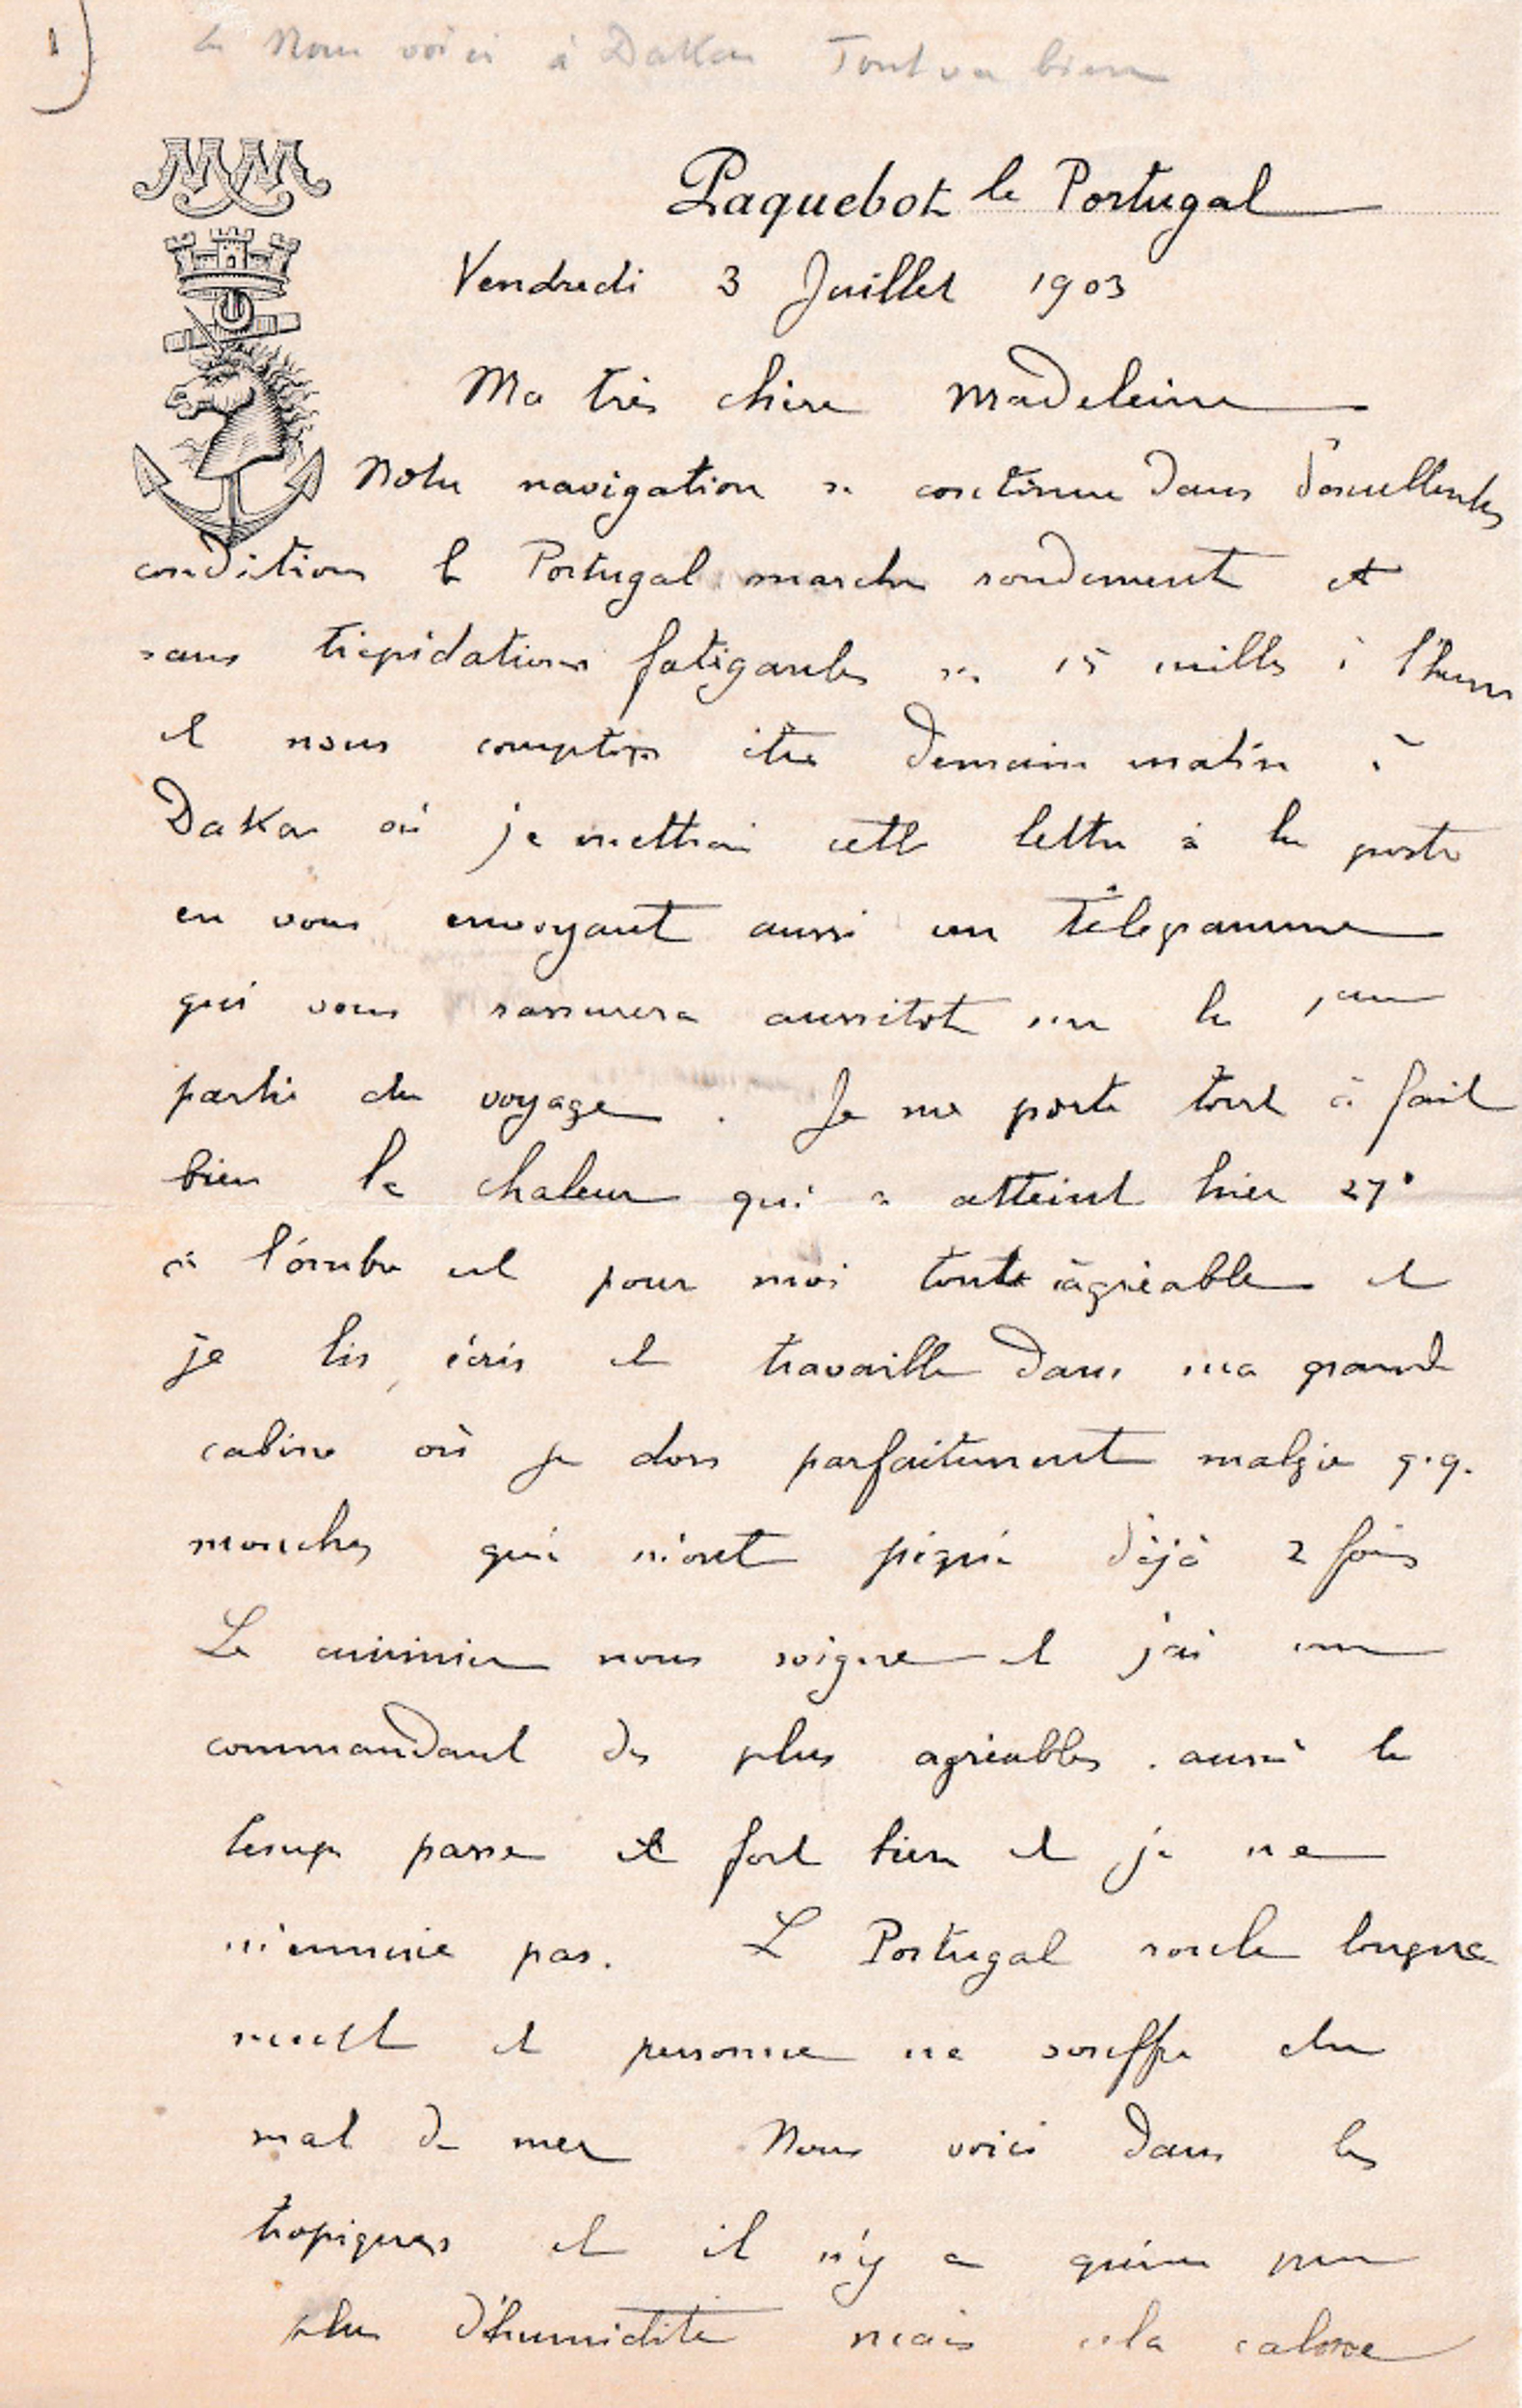 1)
Nous voici à Dakar Tout va bien
MM
Paquebot le Portugal
Vendredi 3 Juillet 1903
Ma très chère Madeleine
Notre navigation se continue dans d'excellentes
conditions le Portugal marche rondement et
sans trépidations fatigantes ses 15 milles à l'heure
et nous comptons être demain matin à
Dakar où je mettrai cette lettre à la poste
en vous envoyant aussi un télégramme
qui vous rassurera aussitôt sur la 1ère
partie du voyage. Je me porte tout à fait
bien la chaleur qui a atteint hier 27°
à l'ombre est pour moi toute agréable et
je lis écris et travaille dans ma grande
cabine où je dors parfaitement malgré q.q.
mouches qui m'ont piqué déjà 2 fois
Le cuisinier nous soigne et j'ai un
commandant des plus agréables. aussi le
temps passe fort bien et je ne
m'ennuie pas. Le Portugal roule longue
et personne ne souffre du
mal de mer Nous voici dans les
tropiques et il n'y a qu'un peu
plus d'humidité mais cela